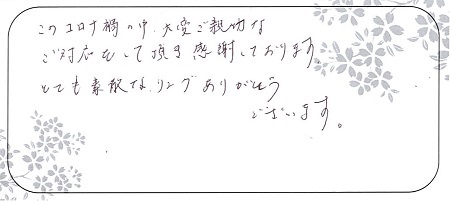 このコロナ禍の中、大変ご親切な
ご対応をして頂き感謝しております。
とても素敵なリングありがとう
ございます。